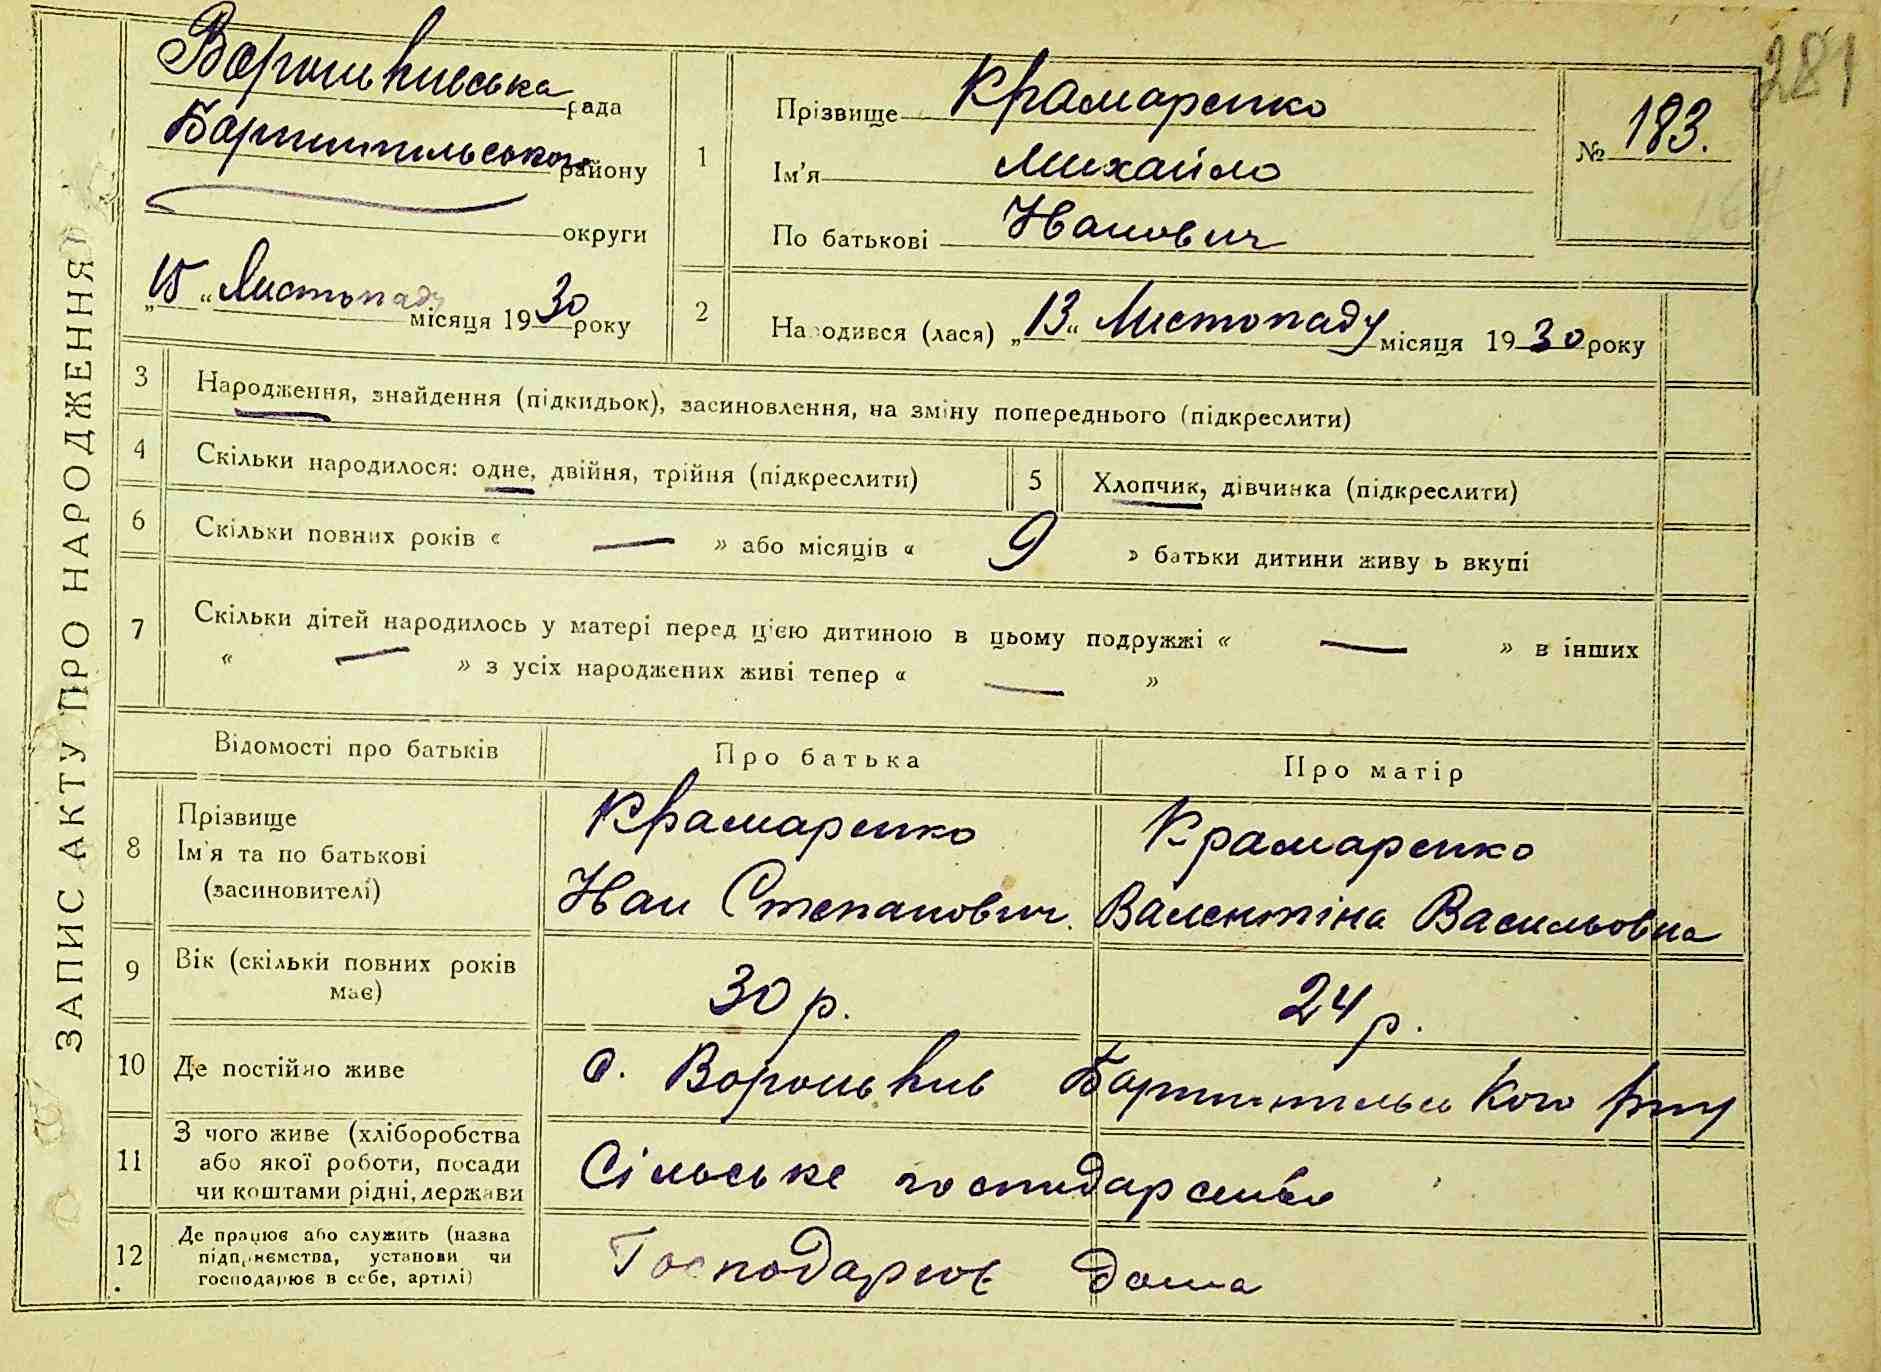 ЗАПИС АКТУ ПРО НАРОДЖЕННЯ
281
Вороньківська рада
Бориспільського району
округи
„15“ Листопаду місяця 1930 року
1
Прізвище Крамаренко
Ім'я Михайло
По батькові Иванович
№ 183.
2
Народився (лася) „13“ Листопаду місяця 1930 року
3 Народження, знайдення (підкидьок), засиновлення, на зміну попереднього (підкреслити)
4 Скільки народилося: одне, двійня, трійня (підкреслити)
5 Хлопчик, дівчинка (підкреслити)
6 Скільки повних років « — » або місяців « 9 » батьки дитини живуть вкупі
7 Скільки дітей народилось у матері перед цією дитиною в цьому подружжі « — » в інших
« — » з усіх народжених живі тепер « — »
Відомості про батьків Про батька Про матір
8 Прізвище
Ім'я та по батькові
(засиновителі)
Крамаренко
Иван Степанович.
Крамаренко
Валентіна Васильовна
9 Вік (скільки повних років
має)
30 р. 24 р.
10 Де постійно живе
с. Вороньків Бориспільського р-ну
11 З чого живе (хліборобства
або якої роботи, посади
чи коштами рідні, держави
Сільське господарство
12 Де працює або служить (назва
підприємства, установи чи
господарює в себе, артілі)
Господарює дома